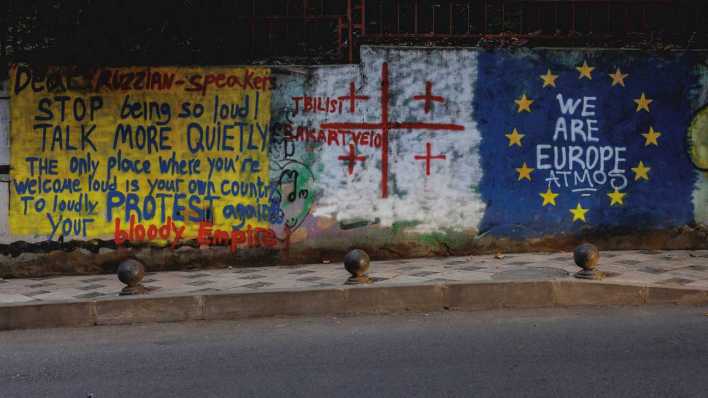 Dear Ruzzian-Speakers
STOP being so loud!
TALK MORE QUIETLY
THE only place where you're
welcome loud is your own country
To loudly PROTEST against
your bloody Empire
TBILISI
SAKARTVELO
WE
ARE
EUROPE
ATMOS